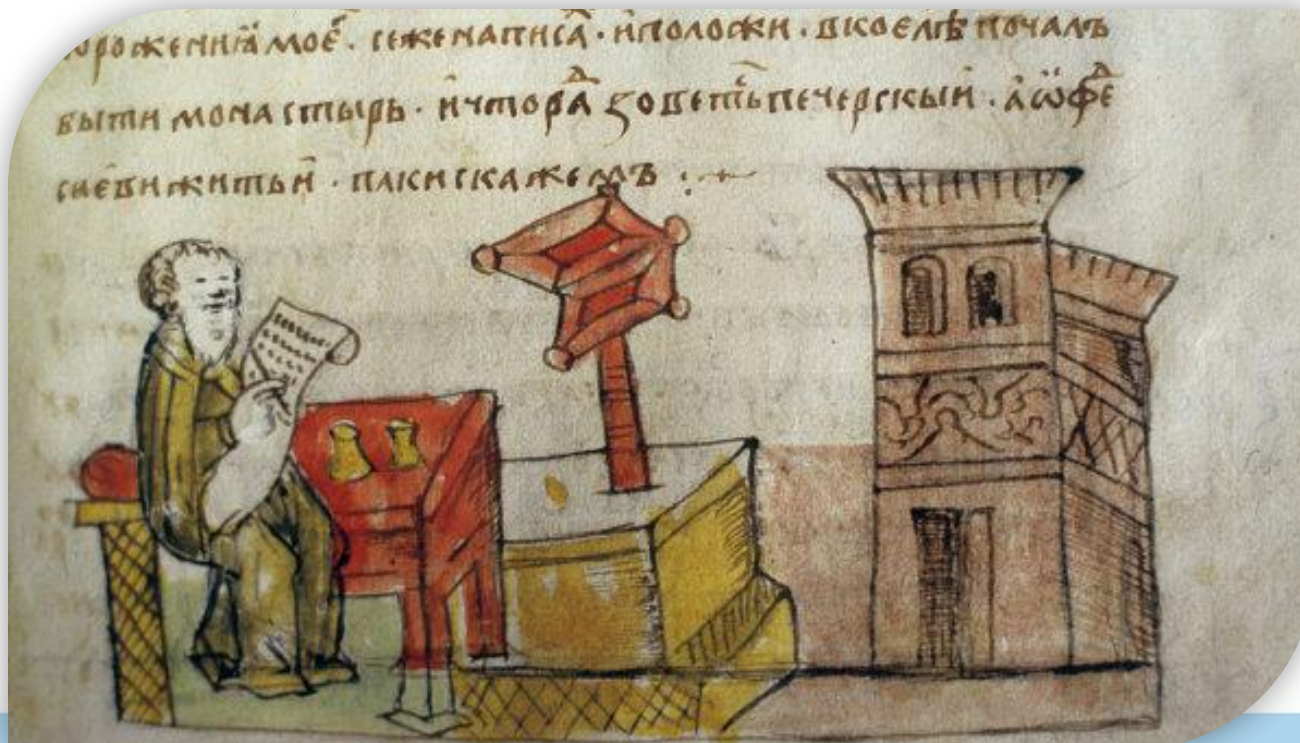 рожениꙗ моеⷢ · сеженаписаⷯ · иположиⷯ · вкоелѣⷮ почалъ
быти монастырь · ичтораⷣ зоветьⷭ печерскыи · аѡфеⷣ
сиеви житьи · паки скажемъ ·:~